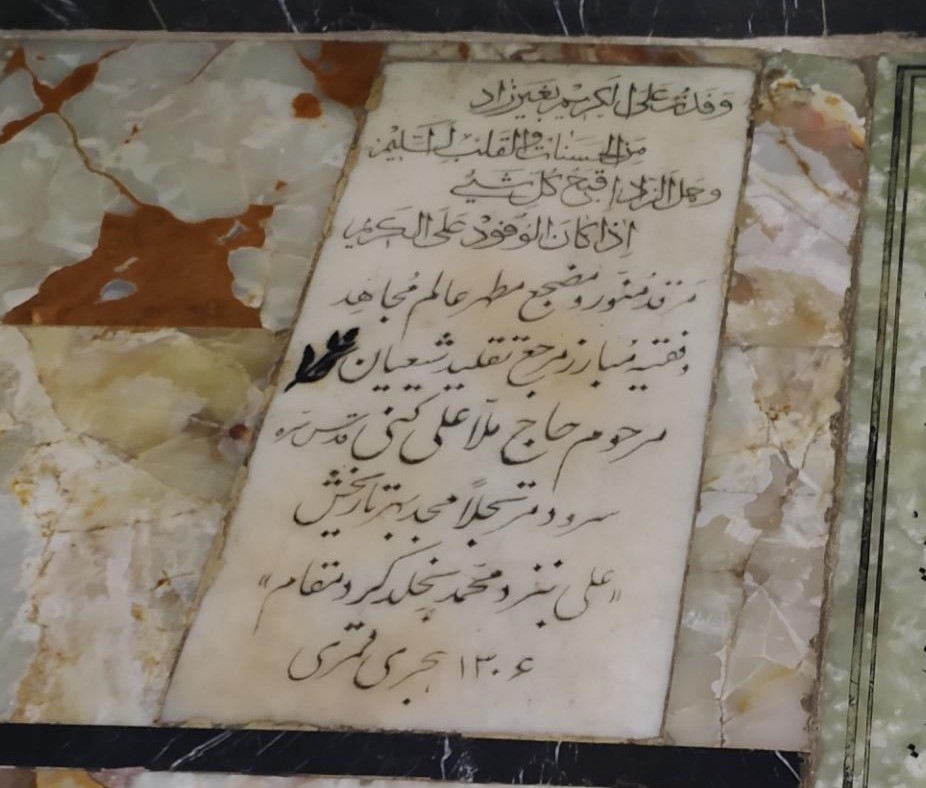 وَفَدْتُ عَلَی الْکَرِیْمِ بِغَیْرِ زَادٍ
مِنَ الْحَسَنَاتِ وَالْقَلْبِ السَّلِیْمِ
وَحَمْلُ الزَّادِ اَقْبَحُ کُلِّ شَیْئٍ
اِذَا کَانَ الْوُفُوْدُ عَلَی الْکَرِیْمِ
مَرقَد مُنَوَّر و مَضجع مطهر عالم مُجاهِد
و فقیه مُبارز مرجع تقلید شیعیان
مرحوم حاج ملّا علی کنی قدّس سرّه
سرود مرتجلاً مجد بهر تاریخش
«علی بنزد محمّد بخلد کرد مقام»
۱۳۰۶ هجری قمری